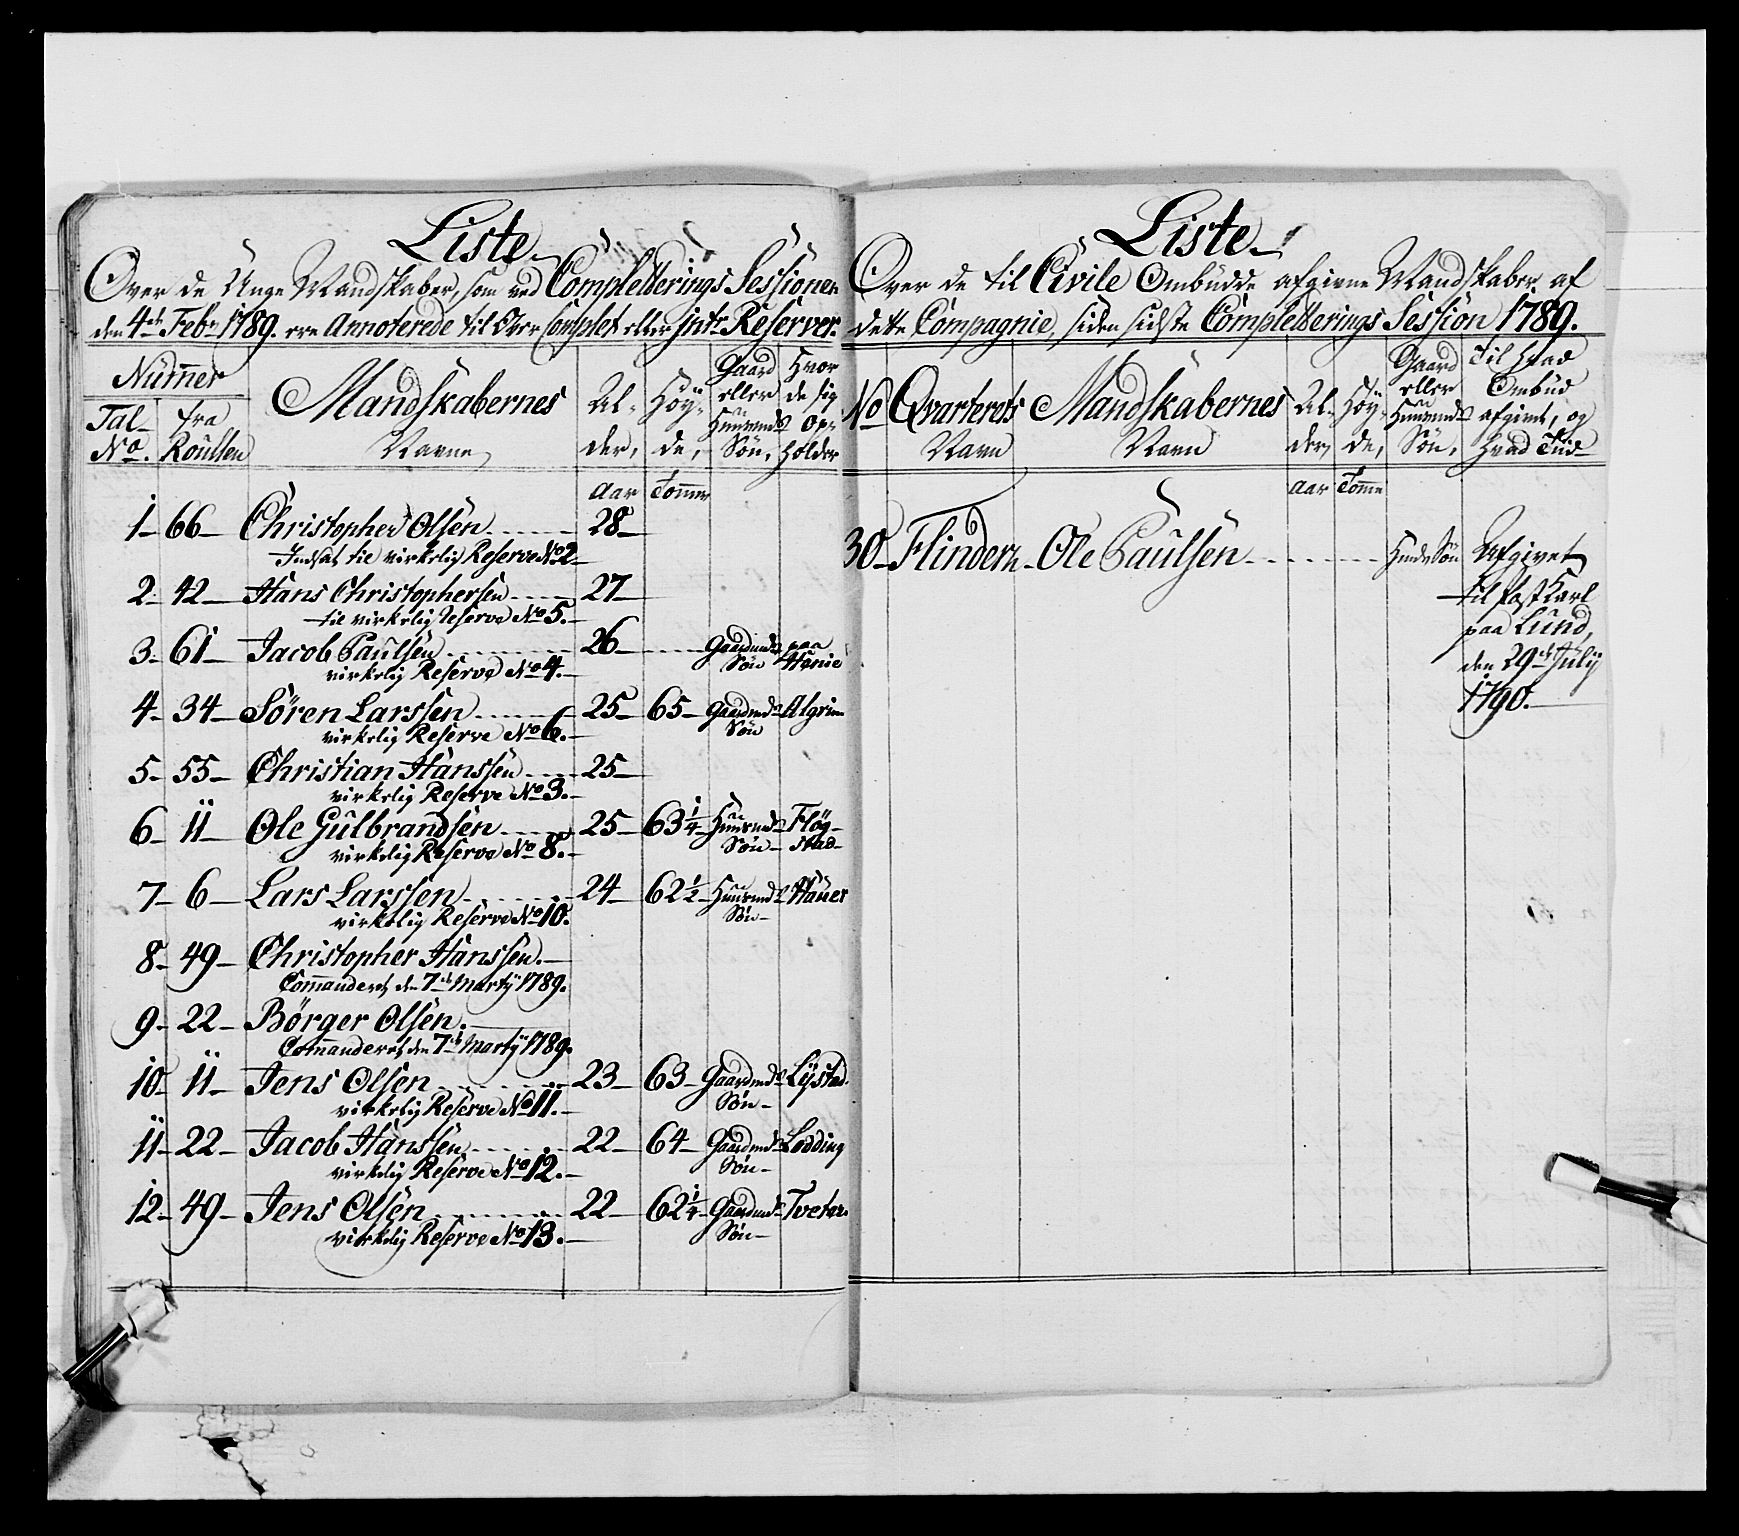 Liste
Over de Unge Mandskaber, som ved Completterings Sessionen
den 4de Febr. 1789. ere Annoterede til Over Complet eller Reserver.
Numer
Tal-
No.
fra
Roullen
Mandskabernes
Navne
Al-
der,
Höy-
de,
Gaard
eller
Huusmds
Sön,
Hvor
de sig
op-
holder
Aar Tommer
1 66 Christopher Olsen 28
Indsat til virkelig Reserve No 2
2 42 Hans Christophersen 27
til virkelig Reserve No 5.
3 61 Jacob Paulsen 26 Gaardmds Sön paa Hanie
virkelig Reserve No 4.
4 34 Sören Larssen 25 65 Gaardmds Sön Algrim
virkelig Reserve No 6.
5 55 Christian Hanssen 25
virkelig Reserve No 3.
6 11 Ole Gulbrandsen 25 63 1/4 Huusmds Sön Flögstad
virkelig Reserve No 8.
7 6 Lars Larssen 24 62 1/2 Huusmds Sön Hauer
virkelig Reserve No 10.
8 49 Christopher Hanssen.
Commanderet den 7de Marty 1789.
9 22 Börger Olsen.
Commanderet den 7de Marty 1789.
10 11 Jens Olsen 23 63 Gaardmds Sön Lystad.
virkelig Reserve No 11.
11 22 Jacob Hanssen 22 64 Gaardmds Sön Lodding
virkelig Reserve No 12.
12 49 Jens Olsen 22 62 1/4 Gaardmds Sön Tveter.
virkelig Reserve No 13.
Liste
Over de til Civile Ombudde afgivne Mandskaber af
dette Compagnie, siden sidste Completterings Session 1789.
No
Qvarterets
Navn
Mandskabernes
Navn
Al-
der,
Höy-
de,
Gaard
eller
Huusmds
Sön,
Til hvad
Ombud
afgivet, og
hvad Tid
Aar Tomme
30 Flindern Ole Paulsen Huusmds Sön Afgivet
til Post Karl
paa Lund,
den 29de July
1790.